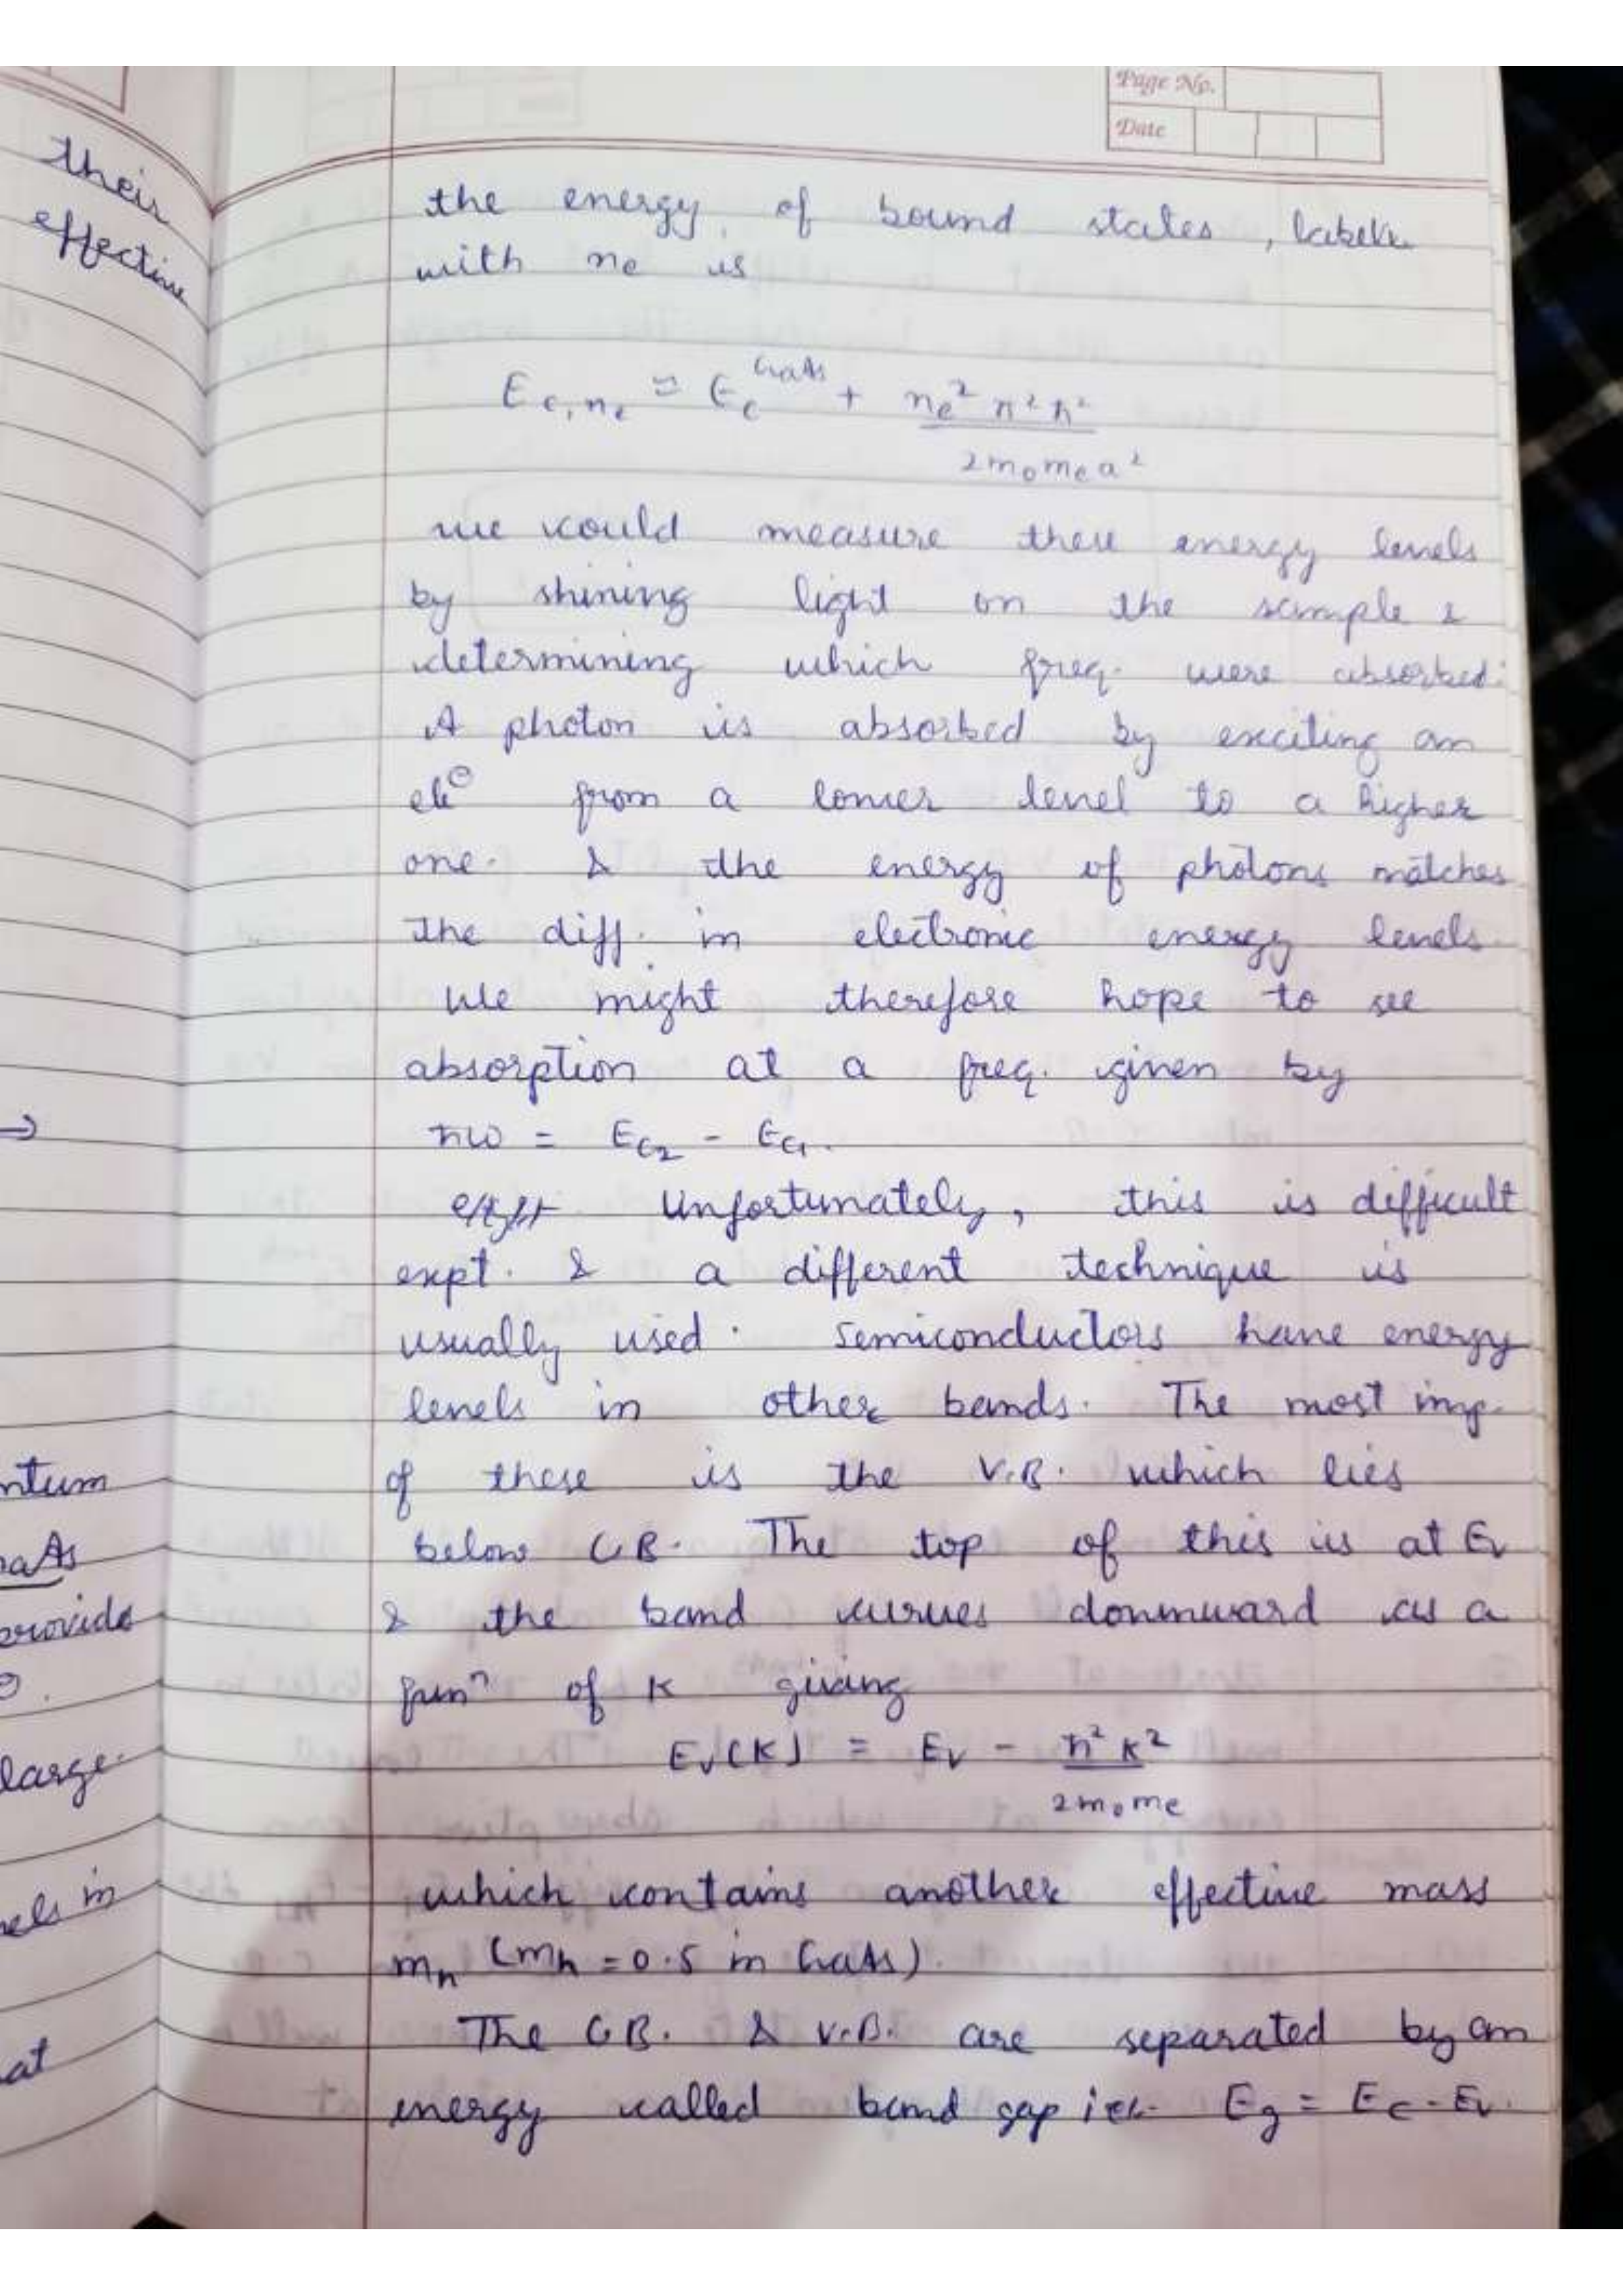 Page No.
Date
their
effective
the energy of bound states, labele
with ne is
E c,ne ≈ Ec^GaAs + ne² π² ħ² / 2 m0 me a²
we could measure these energy levels
by shining light on the sample &
determining which freq. were absorbed.
A photon is absorbed by exciting an
ele⊖ from a lower level to a higher
one. & the energy of photons matches
the diff. in electronic energy levels.
We might therefore hope to see
absorption at a freq. given by
ħω = Ec2 - Ec1.
Unfortunately, this is difficult
expt. & a different technique is
usually used. Semiconductors have energy
levels in other bands. The most imp.
of these is the V.B. which lies
below C.B. The top of this is at Ev
& the band curves downward as a
funⁿ of K giving
Ev(K) = Ev - ħ² K² / 2 m0 me
which contains another effective mass
mh (mh = 0.5 in GaAs).
The C.B. & V.B. are separated by an
energy called band gap i.e. Eg = Ec - Ev.
→
ntum
aAs
provide
large.
els in
at